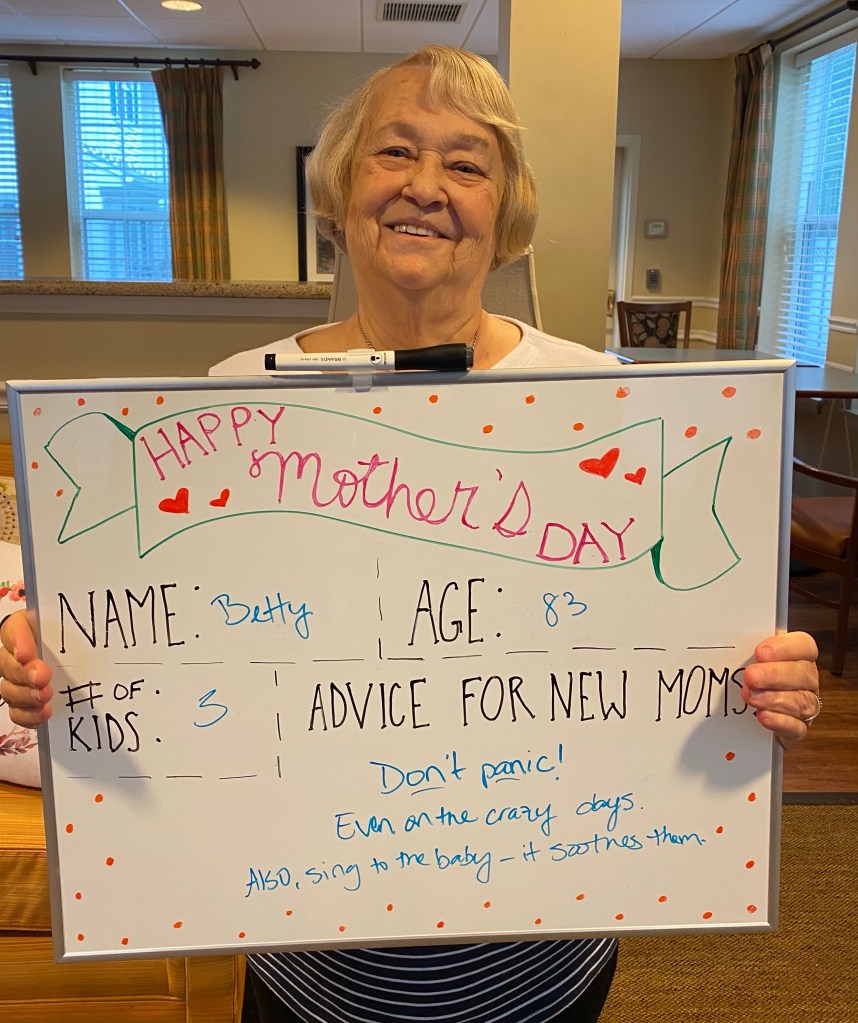 U BRANDS
HAPPY
Mother's
DAY
NAME: Betty
AGE: 83
# OF KIDS: 3
ADVICE FOR NEW MOMS:
Don't panic!
Even on the crazy days.
Also, sing to the baby – it soothes them.